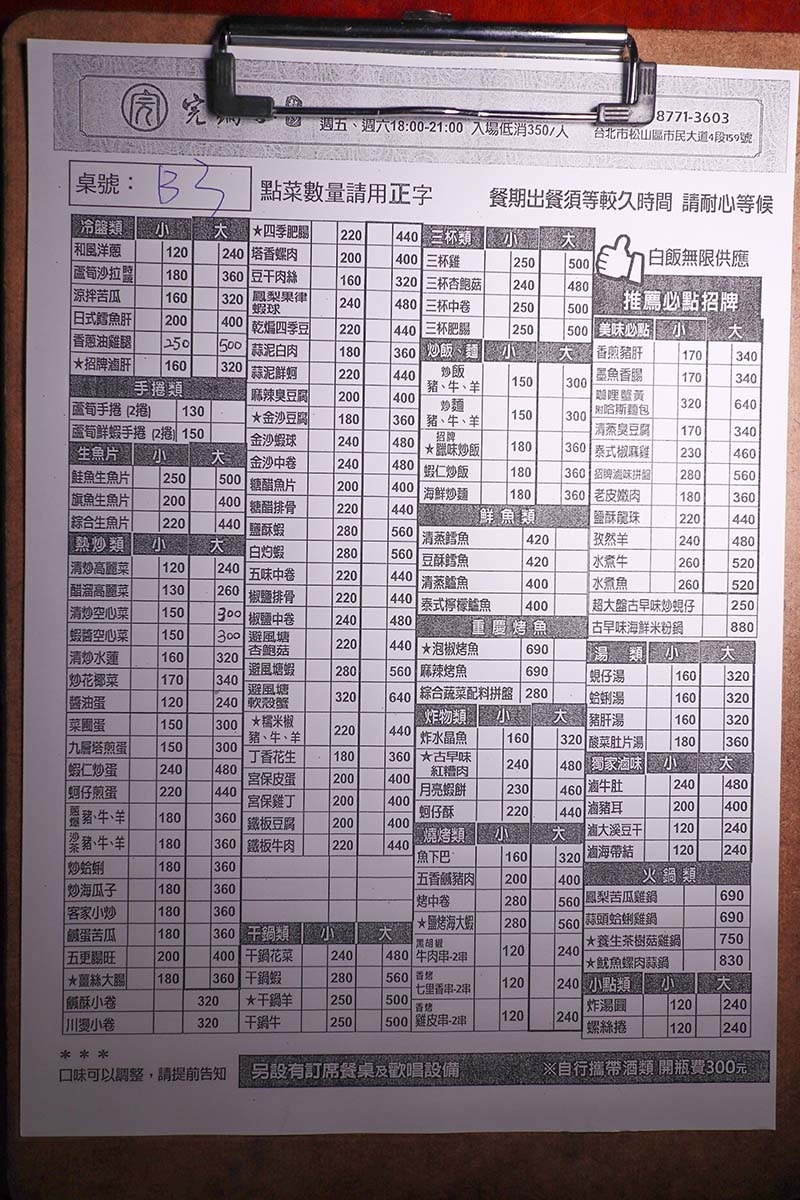 完
週五、週六18:00-21:00 入場低消350/人
8771-3603
台北市松山區市民大道4段159號
桌號： B3
點菜數量請用正字
餐期出餐須等較久時間 請耐心等候
冷盤類 小 大
和風洋蔥 120 240
蘆筍沙拉 時蔬 180 360
涼拌苦瓜 160 320
日式鱈魚肝 200 400
香蔥油雞腿 250 500
★招牌滷肝 160 320
手捲類
蘆筍手捲 (2捲) 130
蘆筍鮮蝦手捲 (2捲) 150
生魚片 小 大
鮭魚生魚片 250 500
旗魚生魚片 200 400
綜合生魚片 220 440
熱炒類 小 大
清炒高麗菜 120 240
醋溜高麗菜 130 260
清炒空心菜 150 300
蝦醬空心菜 150 300
清炒水蓮 160 320
炒花椰菜 170 340
醬油蛋 120 240
菜圃蛋 150 300
九層塔煎蛋 150 300
蝦仁炒蛋 240 480
蚵仔煎蛋 220 440
蔥爆 豬、牛、羊 180 360
沙茶 豬、牛、羊 180 360
炒蛤蜊 180 360
炒海瓜子 180 360
客家小炒 180 360
鹹蛋苦瓜 180 360
五更腸旺 200 400
★薑絲大腸 180 360
鹹酥小卷 320
川燙小卷 320
★四季肥腸 220 440
塔香螺肉 200 400
豆干肉絲 160 320
鳳梨果律蝦球 240 480
乾煸四季豆 220 440
蒜泥白肉 180 360
蒜泥鮮蚵 220 440
麻辣臭豆腐 200 400
★金沙豆腐 180 360
金沙蝦球 240 480
金沙中卷 240 480
糖醋魚片 200 400
糖醋排骨 220 440
鹽酥蝦 280 560
白灼蝦 280 560
五味中卷 220 440
椒鹽排骨 220 440
椒鹽中卷 240 480
避風塘杏鮑菇 220 440
避風塘蝦 280 560
避風塘軟殼蟹 320 640
★糯米椒豬、牛、羊 220 440
丁香花生 180 360
宮保皮蛋 200 400
宮保雞丁 200 400
鐵板豆腐 200 400
鐵板牛肉 220 440
干鍋類 小 大
干鍋花菜 240 480
干鍋蝦 280 560
★干鍋羊 250 500
干鍋牛 250 500
三杯類 小 大
三杯雞 250 500
三杯杏鮑菇 240 480
三杯中卷 250 500
三杯肥腸 250 500
炒飯、麵 小 大
炒飯 豬、牛、羊 150 300
炒麵 豬、牛、羊 150 300
招牌 ★臘味炒飯 180 360
蝦仁炒飯 180 360
海鮮炒麵 180 360
鮮魚類
清蒸鱈魚 420
豆酥鱈魚 420
清蒸鱸魚 400
泰式檸檬鱸魚 400
重慶烤魚
★泡椒烤魚 690
麻辣烤魚 690
綜合蔬菜配料拼盤 280
炸物類 小 大
炸水晶魚 160 320
★古早味紅糟肉 240 480
月亮蝦餅 230 460
蚵仔酥 220 440
燒烤類 小 大
魚下巴 160 320
五香鹹豬肉 200 400
烤中卷 280 560
★鹽烤海大蝦 280 560
黑胡椒 牛肉串-2串 120 240
香烤 七里香串-2串 120 240
香烤 雞皮串-2串 120 240
白飯無限供應
推薦必點招牌
美味必點 小 大
香煎豬肝 170 340
墨魚香腸 170 340
咖哩蟹黃 附哈斯麵包 320 640
清蒸臭豆腐 170 340
泰式椒麻雞 230 460
招牌滷味拼盤 280 560
老皮嫩肉 180 360
鹽酥龍珠 220 440
孜然羊 240 480
水煮牛 260 520
水煮魚 260 520
超大盤古早味炒蜆仔 250
古早味海鮮米粉鍋 880
湯類 小 大
蜆仔湯 160 320
蛤蜊湯 160 320
豬肝湯 160 320
酸菜肚片湯 180 360
獨家滷味 小 大
滷牛肚 240 480
滷豬耳 200 400
滷大溪豆干 120 240
滷海帶結 120 240
火鍋類
鳳梨苦瓜雞鍋 690
蒜頭蛤蜊雞鍋 690
★養生茶樹菇雞鍋 750
★魷魚螺肉蒜鍋 830
小點類 小 大
炸湯圓 120 240
螺絲捲 120 240
＊＊＊
口味可以調整，請提前告知
另設有訂席餐桌及歡唱設備
※自行攜帶酒類 開瓶費300元